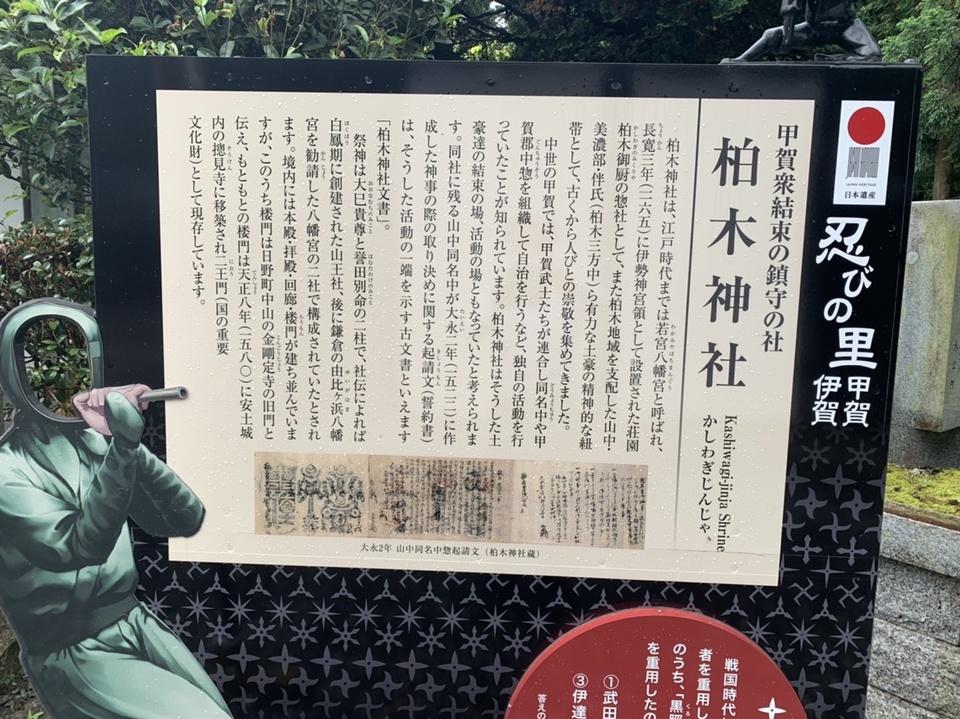 JAPAN HERITAGE
日本遺産
忍びの里
甲賀
伊賀
甲賀衆結束の鎮守の社
柏木神社
Kashiwagi-jinja Shrine
かしわぎじんじゃ
柏木神社は、江戸時代までは若宮八幡宮と呼ばれ、
長寛三年(一一六五)に伊勢神宮領として設置された荘園
柏木御厨の惣社として、また柏木地域を支配した山中・
美濃部・伴氏(柏木三方中)ら有力な土豪の精神的な紐
帯として、古くから人びとの崇敬を集めてきました。
中世の甲賀では、甲賀武士たちが連合し同名中や甲
賀郡中惣を組織して自治を行うなど、独自の活動を行
っていたことが知られています。柏木神社はそうした土
豪達の結束の場、活動の場ともなっていたと考えられま
す。同社に残る山中同名中が大永二年(一五二二)に作
成した神事の際の取り決めに関する起請文(誓約書)
は、そうした活動の一端を示す古文書といえます
「柏木神社文書」。
祭神は大巳貴尊と誉田別命の二柱で、社伝によれば
白鳳期に創建された山王社、後に鎌倉の由比ヶ浜八幡
宮を勧請した八幡宮の二社で構成されていたとされ
ます。境内には本殿・拝殿・回廊・楼門が建ち並んでいま
すが、このうち楼門は日野町中山の金剛定寺の旧門と
伝え、もともとの楼門は天正八年(一五八〇)に安土城
内の摠見寺に移築され二王門(国の重要
文化財)として現存しています。
大永2年 山中同名中惣起請文(柏木神社蔵)
戦国時代
者を重用し
のうち、「黒
を重用したの
①武田
③伊達
答えの